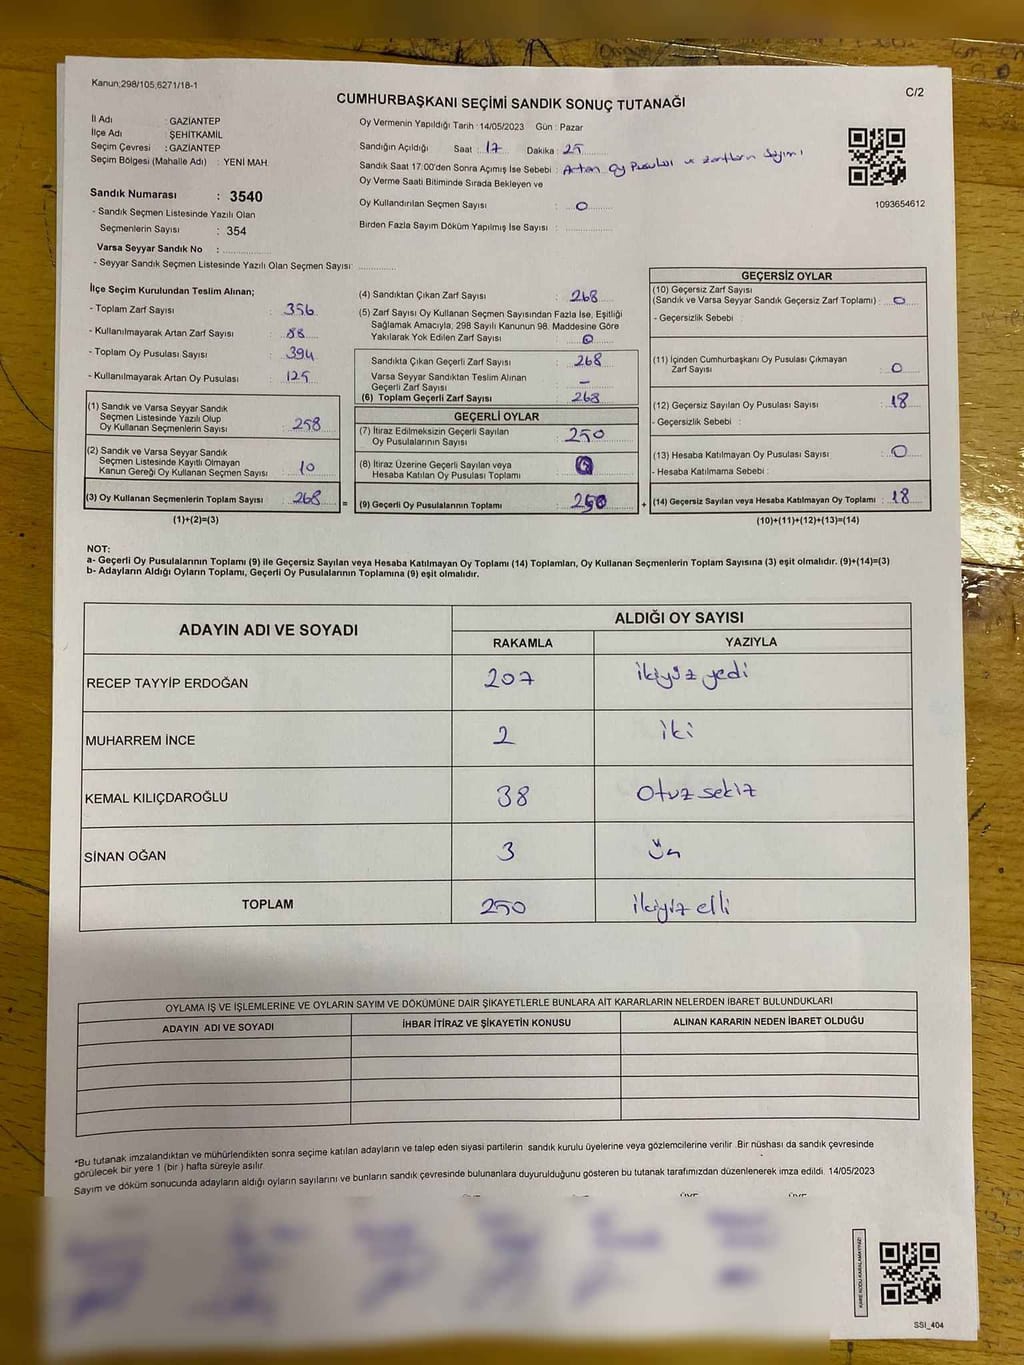 Kanun;298/105,6271/18-1
C/2
CUMHURBAŞKANI SEÇİMİ SANDIK SONUÇ TUTANAĞI
İl Adı : GAZİANTEP
İlçe Adı : ŞEHİTKAMİL
Seçim Çevresi : GAZİANTEP
Seçim Bölgesi (Mahalle Adı) : YENİ MAH
Oy Vermenin Yapıldığı Tarih : 14/05/2023 Gün : Pazar
Sandığın Açıldığı Saat : 17 Dakika : 25
Sandık Saat 17:00'den Sonra Açımış İse Sebebi : Artan Oy Pusulası ve zarfların Sayımı
Oy Verme Saati Bitiminde Sırada Bekleyen ve
Oy Kullandırılan Seçmen Sayısı : 0
Birden Fazla Sayım Döküm Yapılmış İse Sayısı :
1093654612
Sandık Numarası : 3540
- Sandık Seçmen Listesinde Yazılı Olan
Seçmenlerin Sayısı : 354
Varsa Seyyar Sandık No :
- Seyyar Sandık Seçmen Listesinde Yazılı Olan Seçmen Sayısı:
İlçe Seçim Kurulundan Teslim Alınan;
- Toplam Zarf Sayısı : 356
- Kullanılmayarak Artan Zarf Sayısı : 88
- Toplam Oy Pusulası Sayısı : 394
- Kullanılmayarak Artan Oy Pusulası : 125
(1) Sandık ve Varsa Seyyar Sandık
Seçmen Listesinde Yazılı Olup
Oy Kullanan Seçmenlerin Sayısı : 258
(2) Sandık ve Varsa Seyyar Sandık
Seçmen Listesinde Kayıtlı Olmayan
Kanun Gereği Oy Kullanan Seçmen Sayısı : 10
(3) Oy Kullanan Seçmenlerin Toplam Sayısı : 268 =
(1)+(2)=(3)
(4) Sandıktan Çıkan Zarf Sayısı : 268
(5) Zarf Sayısı Oy Kullanan Seçmen Sayısından Fazla İse, Eşitliği
Sağlamak Amacıyla, 298 Sayılı Kanunun 98. Maddesine Göre
Yakılarak Yok Edilen Zarf Sayısı : 0
Sandıkta Çıkan Geçerli Zarf Sayısı : 268
Varsa Seyyar Sandıktan Teslim Alınan
Geçerli Zarf Sayısı : -
(6) Toplam Geçerli Zarf Sayısı : 268
GEÇERLİ OYLAR
(7) İtiraz Edilmeksizin Geçerli Sayılan
Oy Pusulalarının Sayısı : 250
(8) İtiraz Üzerine Geçerli Sayılan veya
Hesaba Katılan Oy Pusulası Toplamı :
(9) Geçerli Oy Pusulalarının Toplamı : 250 +
GEÇERSİZ OYLAR
(10) Geçersiz Zarf Sayısı
(Sandık ve Varsa Seyyar Sandık Geçersiz Zarf Toplamı) : 0
- Geçersizlik Sebebi :
(11) İçinden Cumhurbaşkanı Oy Pusulası Çıkmayan
Zarf Sayısı : 0
(12) Geçersiz Sayılan Oy Pusulası Sayısı : 18
- Geçersizlik Sebebi :
(13) Hesaba Katılmayan Oy Pusulası Sayısı : 0
- Hesaba Katılmama Sebebi :
(14) Geçersiz Sayılan veya Hesaba Katılmayan Oy Toplamı : 18
(10)+(11)+(12)+(13)=(14)
NOT:
a- Geçerli Oy Pusulalarının Toplamı (9) ile Geçersiz Sayılan veya Hesaba Katılmayan Oy Toplamı (14) Toplamları, Oy Kullanan Seçmenlerin Toplam Sayısına (3) eşit olmalıdır. (9)+(14)=(3)
b- Adayların Aldığı Oyların Toplamı, Geçerli Oy Pusulalarının Toplamına (9) eşit olmalıdır.
ADAYIN ADI VE SOYADI ALDIĞI OY SAYISI
RAKAMLA YAZIYLA
RECEP TAYYİP ERDOĞAN 207 ikiyüz yedi
MUHARREM İNCE 2 iki
KEMAL KILIÇDAROĞLU 38 Otuz sekiz
SİNAN OĞAN 3 Üç
TOPLAM 250 ikiyüz elli
OYLAMA İŞ VE İŞLEMLERİNE VE OYLARIN SAYIM VE DÖKÜMÜNE DAİR ŞİKAYETLERLE BUNLARA AİT KARARLARIN NELERDEN İBARET BULUNDUKLARI
ADAYIN ADI VE SOYADI İHBAR İTİRAZ VE ŞİKAYETİN KONUSU ALINAN KARARIN NEDEN İBARET OLDUĞU
*Bu tutanak imzalandıktan ve mühürlendikten sonra seçime katılan adayların ve talep eden siyasi partilerin sandık kurulu üyelerine veya gözlemcilerine verilir .Bir nüshası da sandık çevresinde
görülecek bir yere 1 (bir ) hafta süreyle asılır.
Sayım ve döküm sonucunda adayların aldığı oyların sayılarını ve bunların sandık çevresinde bulunanlara duyurulduğunu gösteren bu tutanak tarafımızdan düzenlenerek imza edildi. 14/05/2023
KARE KODU KARALAMAYINIZ!
SSI_404